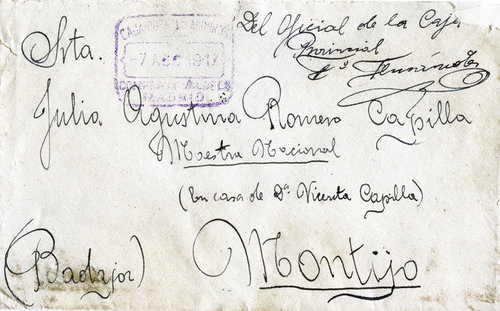 Del Oficial de la Caja
Provincial
Fernández
Srta.
-7 AGO 1947
MADRID
Julia Agustina Romero Capilla
Maestra Nacional
(En casa de Dª Vicenta Capilla)
(Badajoz)
Montijo